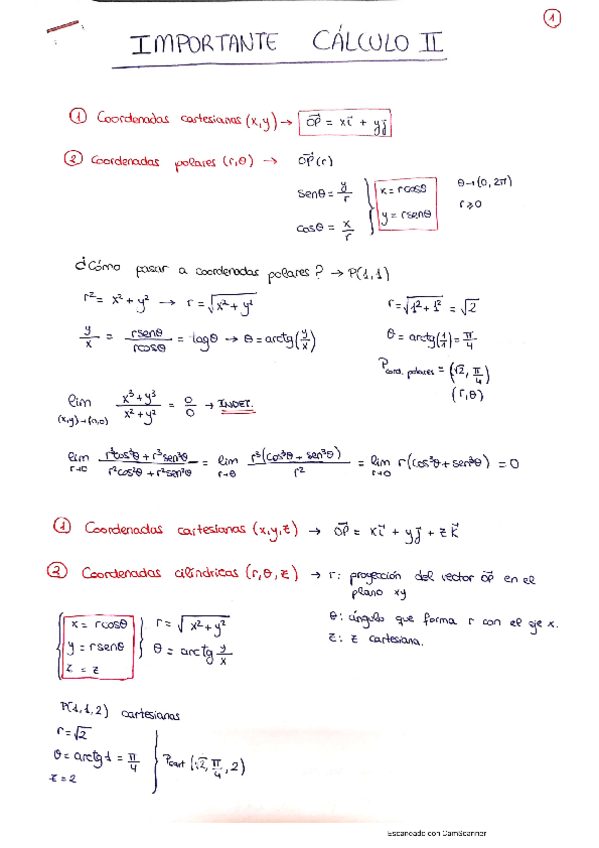 1
IMPORTANTE CÁLCULO II
① Coordenadas cartesianas (x,y) → OP⃗ = xi⃗ + yj⃗
② Coordenadas polares (r,θ) → OP⃗(r)
senθ = y/r
cosθ = x/r
x = rcosθ
y = rsenθ
θ→(0, 2π)
r ≥ 0
¿Cómo pasar a coordenadas polares? → P(1,1)
r² = x² + y² → r = √(x² + y²)
r = √(1² + 1²) = √2
y/x = rsenθ/rcosθ = tagθ → θ = arctg(y/x)
θ = arctg(1/1) = π/4
P coord. polares = (√2, π/4)
(r,θ)
lim (x,y)→(0,0) (x³ + y³)/(x² + y²) = 0/0 → INDET.
lim r→0 (r³cos³θ + r³sen³θ)/(r²cos²θ + r²sen²θ) = lim r→0 r³(cos³θ + sen³θ)/r² = lim r→0 r(cos³θ + sen³θ) = 0
① Coordenadas cartesianas (x,y,z) → OP⃗ = xi⃗ + yj⃗ + zk⃗
② Coordenadas cilíndricas (r,θ,z) → r: proyección del vector OP⃗ en el
plano xy
θ: ángulo que forma r con el eje x.
z: z cartesiana.
x = rcosθ
y = rsenθ
z = z
r = √(x² + y²)
θ = arctg y/x
P(1,1,2) cartesianas
r = √2
θ = arctg 1 = π/4
z = 2
Pcart (√2, π/4, 2)
Escaneado con CamScanner